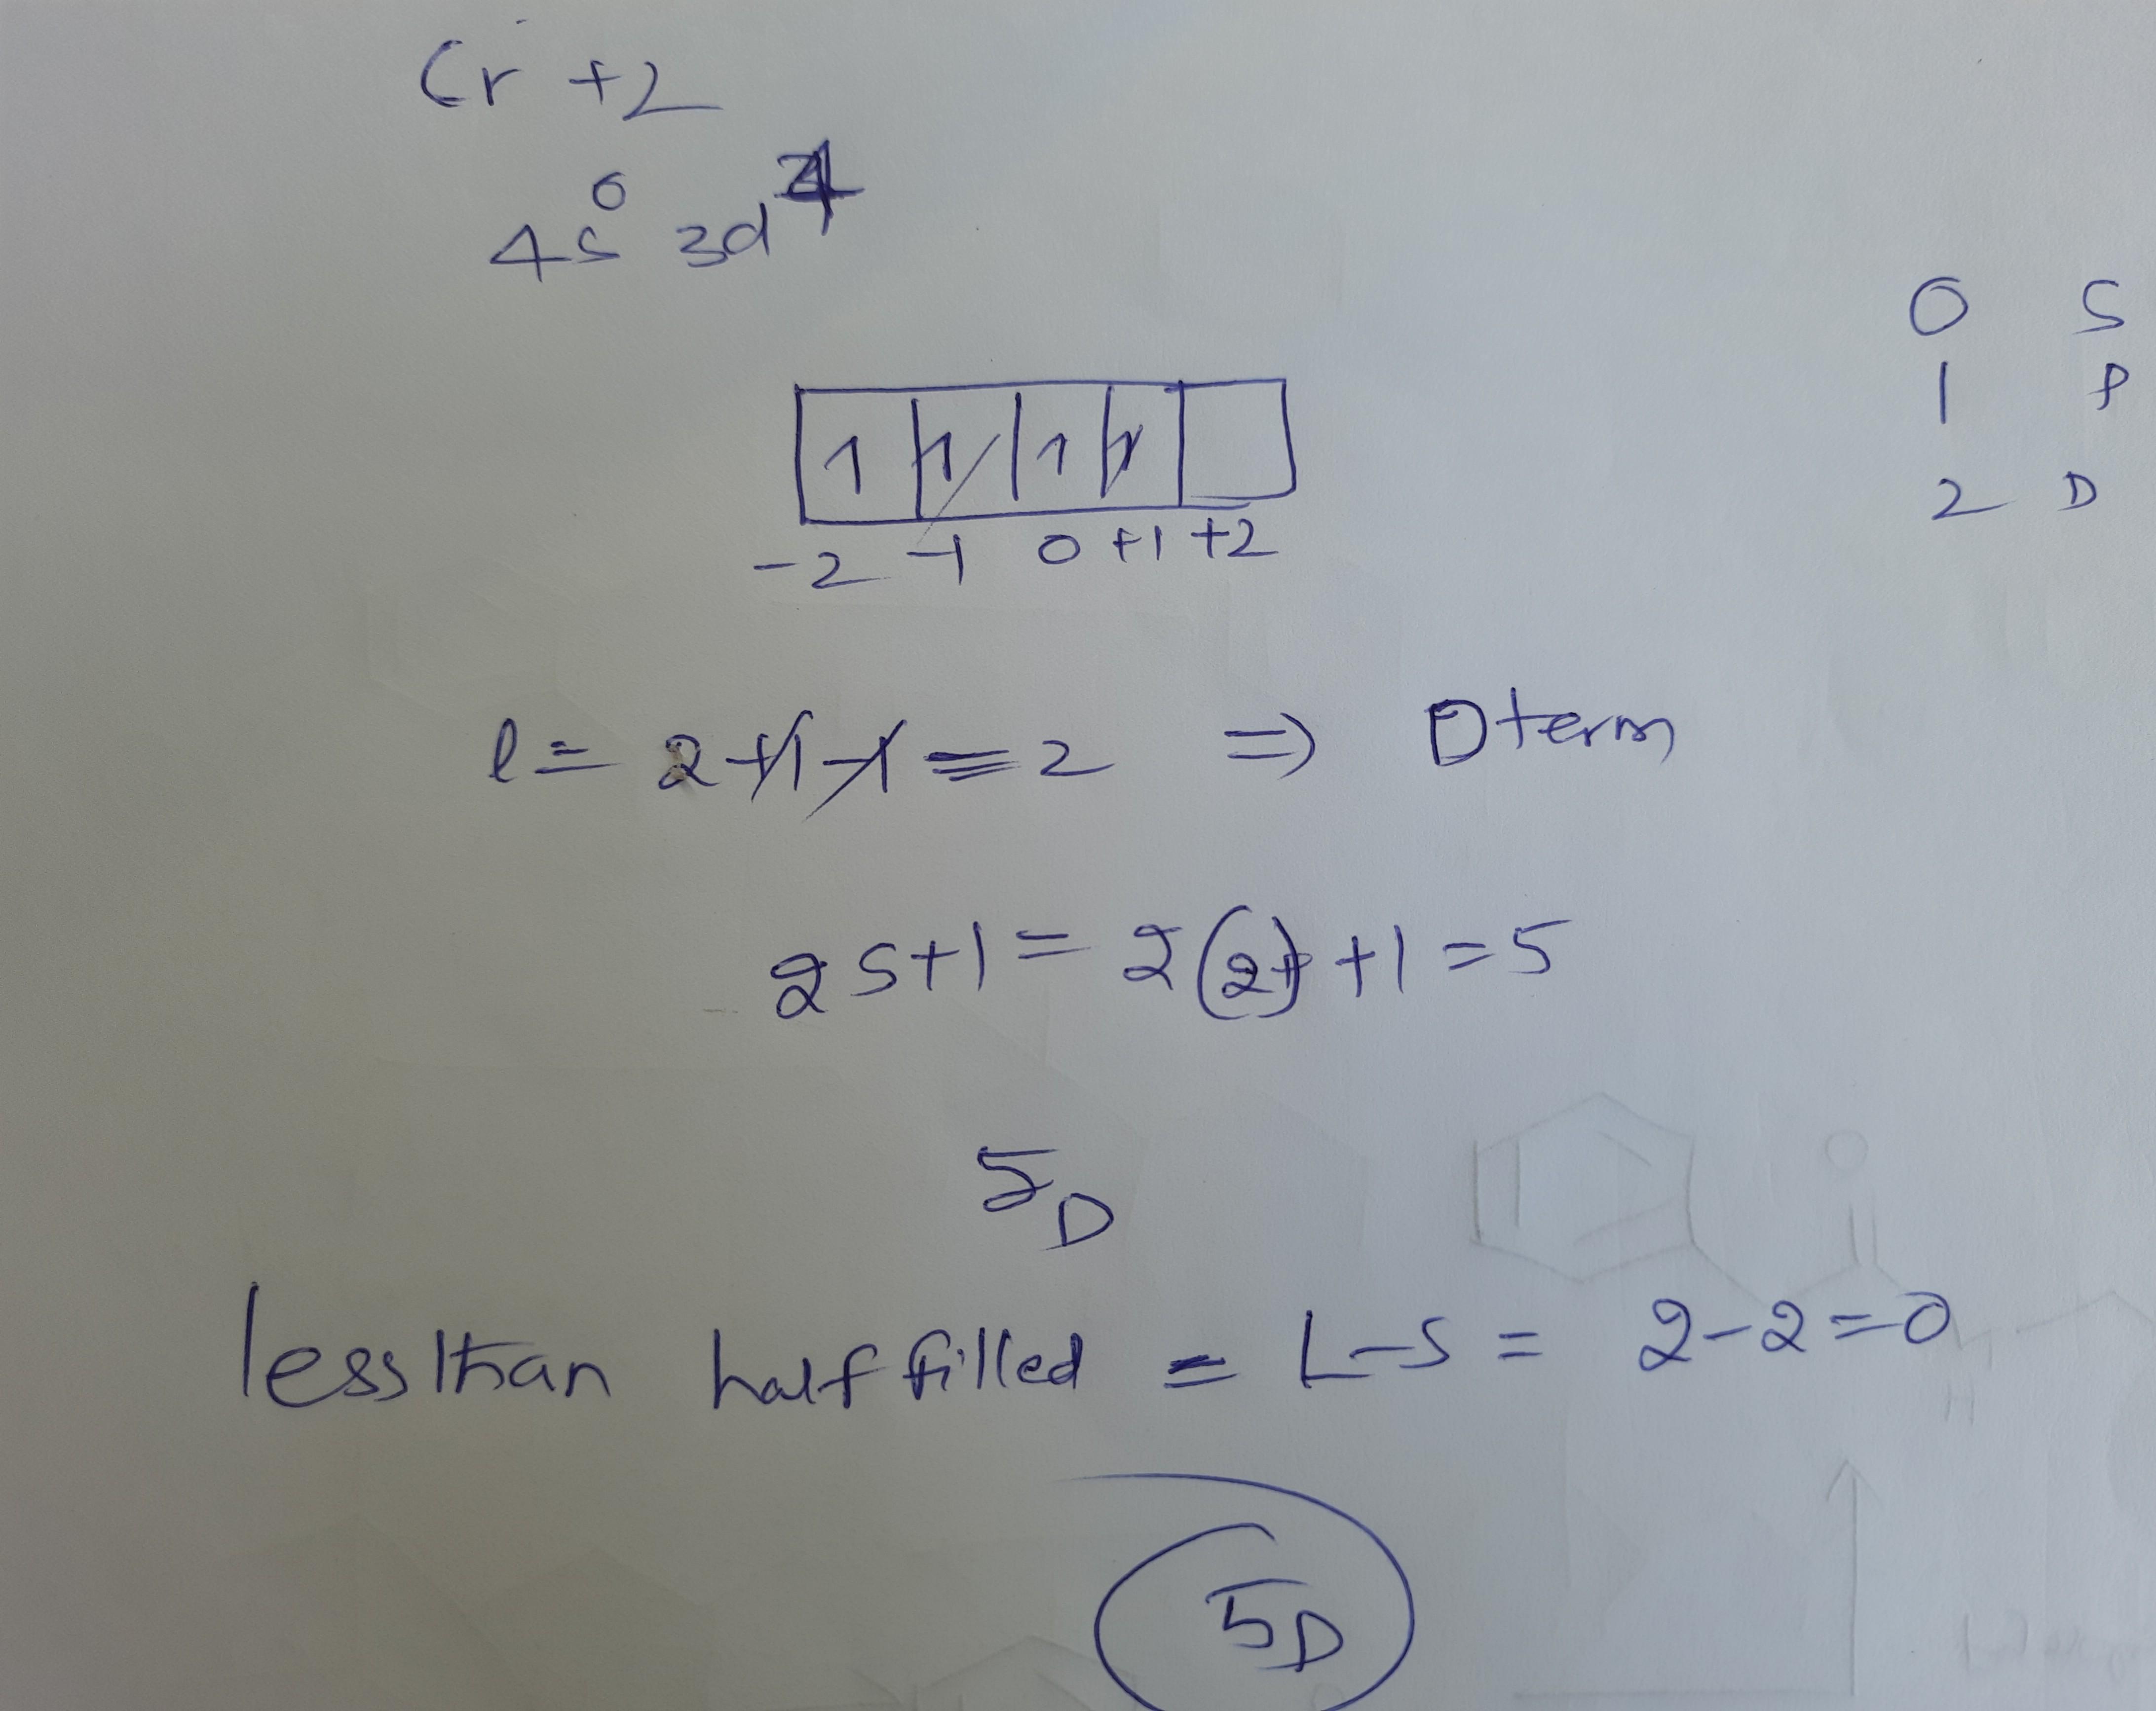 Cr +2
4s⁰ 3d⁴
0 S
1 P
2 D
1 1 1 1
-2 -1 0 +1 +2
l = 2+1-1 = 2 ⇒ D term
2S+1 = 2(2)+1 = 5
5D
less than half filled = L-S = 2-2=0
5D